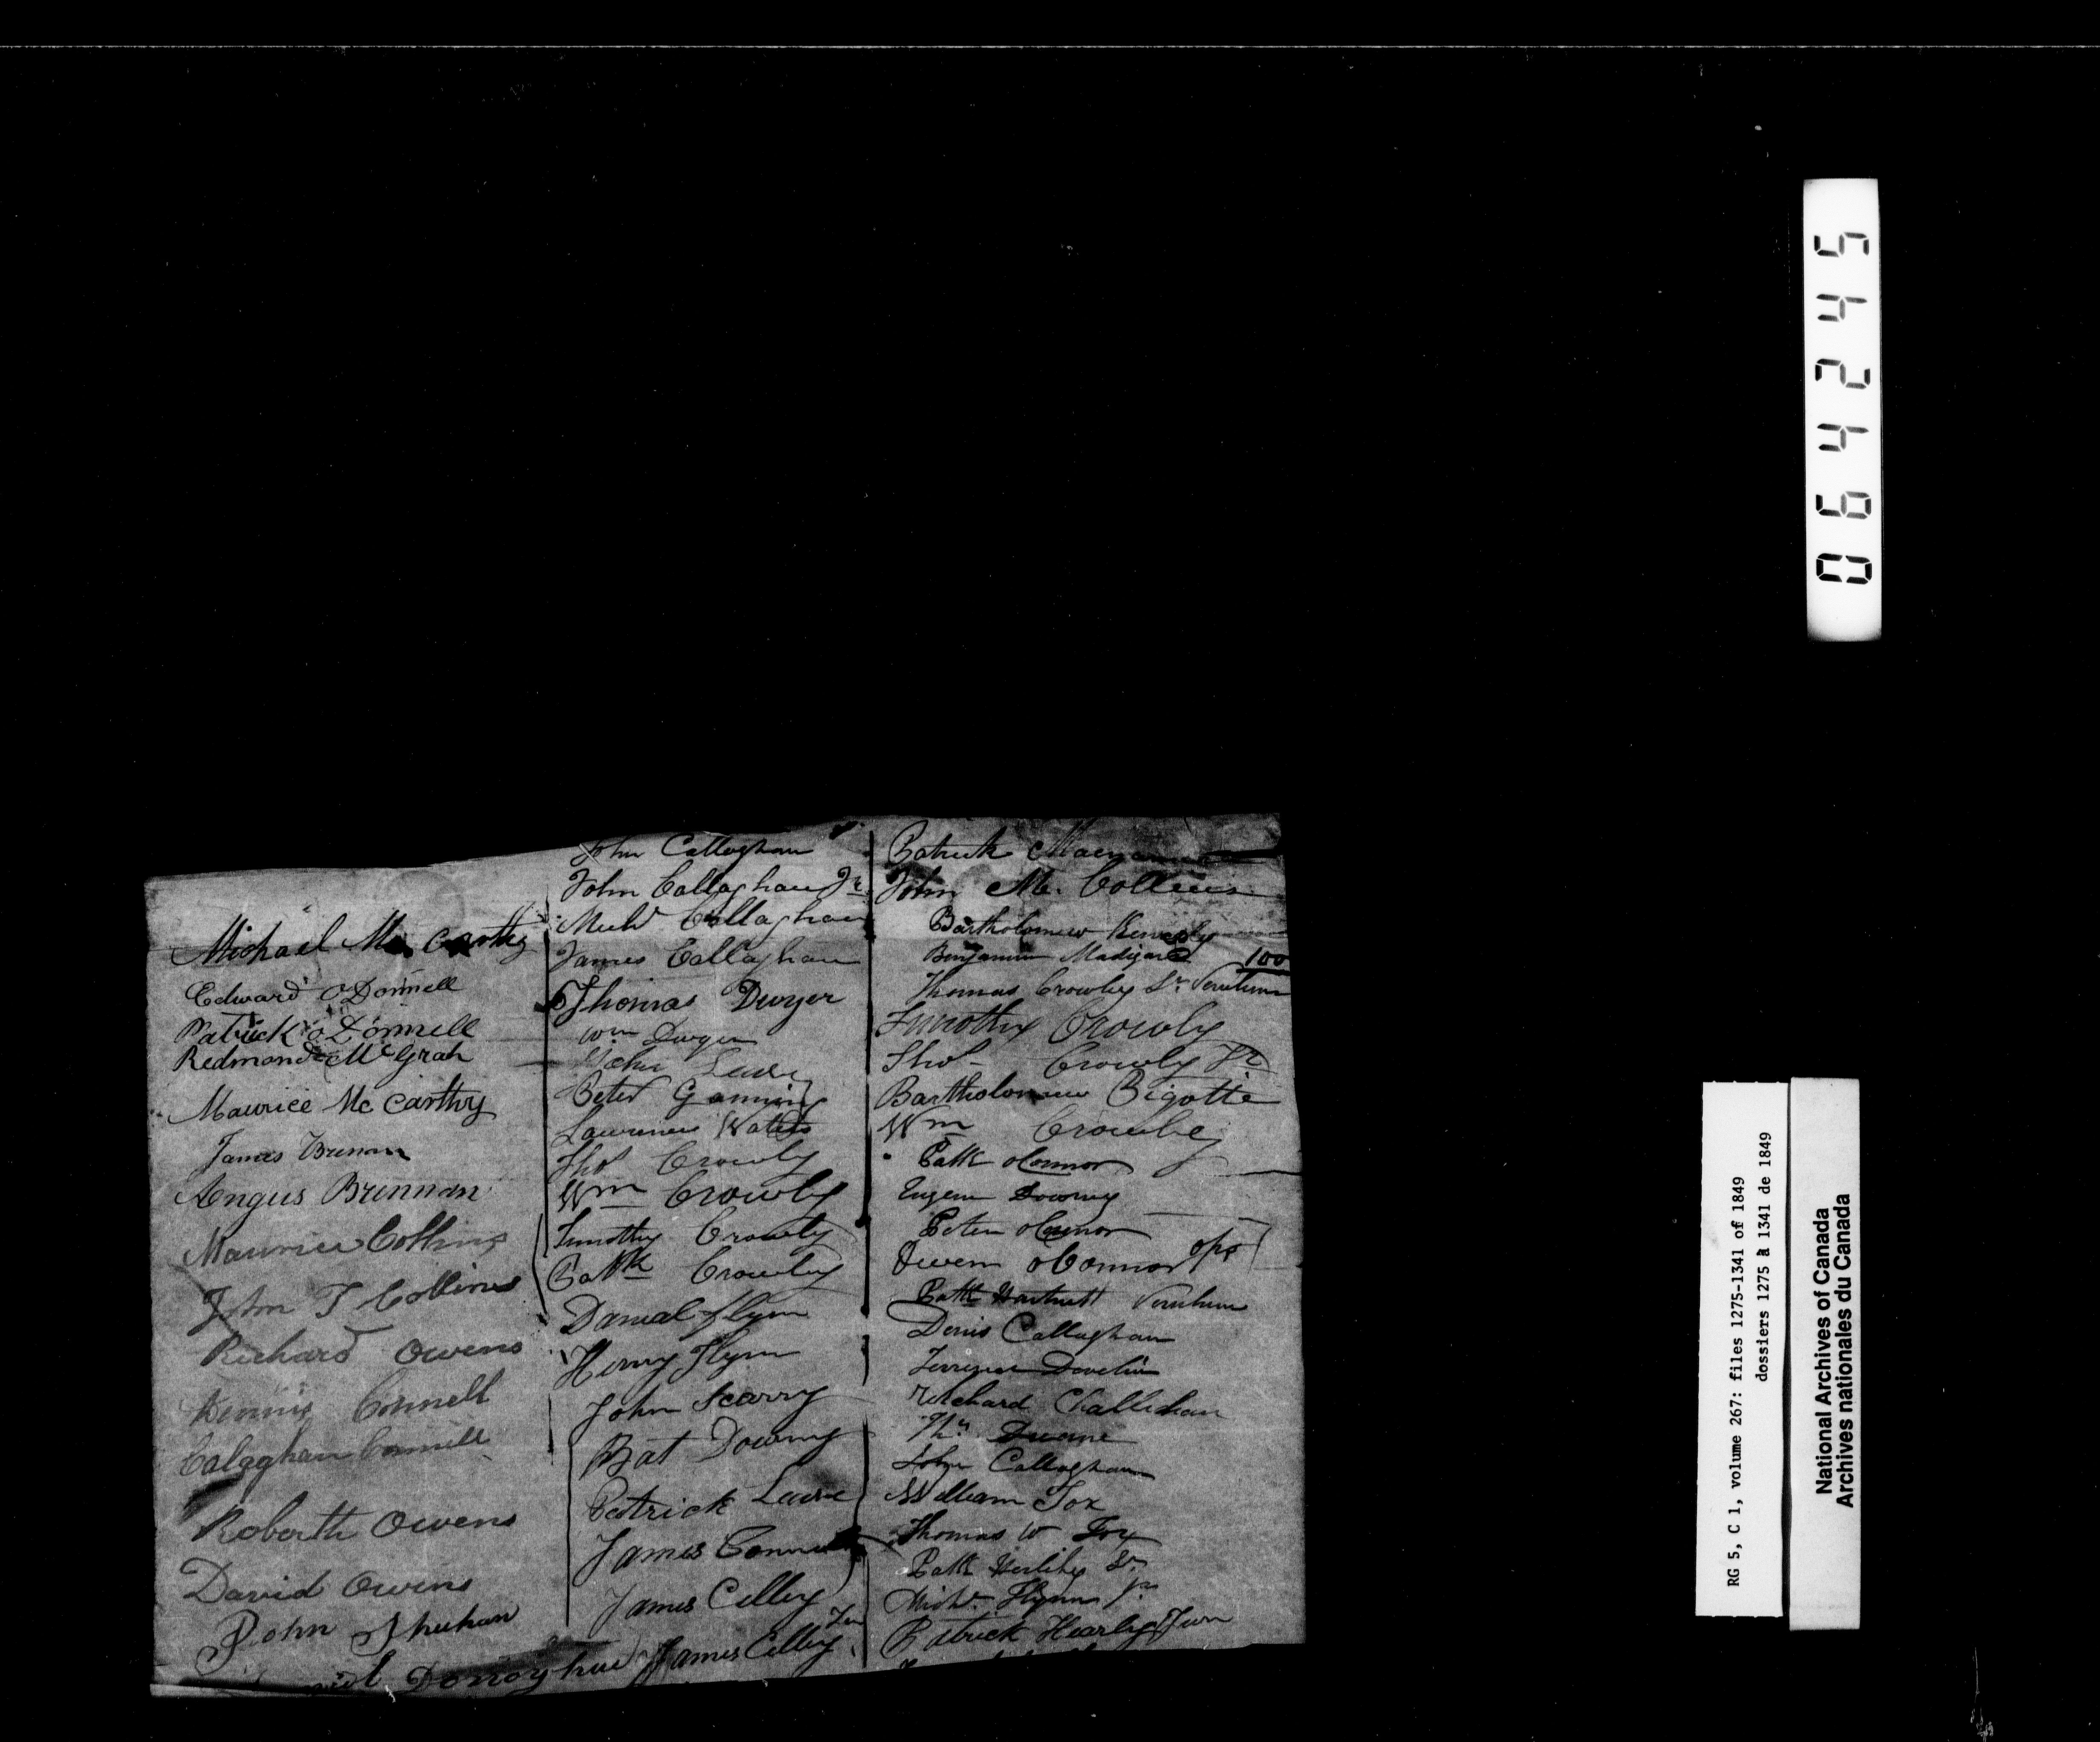 Michael Mc Carthy
Edward O'Donnell
Patrick O'Donnell
Redmond McGrah
Maurice Mc Carthy
James Brennan
Angus Brennan
Maurice Collins
John T Collins
Richard Owens
Dennis Connell
Calaghan Connell
Roberth Owens
David Owens
John Shuhan
Donoghue
John Callaghan
John Callaghan Jr
Michl Callaghan
James Callaghan
Thomas Dwyer
Wm Dwyer
John
Peter Ganning
Lawrence Waters
Thos Crowly
Wm Crowly
Timothy Crowly
Patk Crowley
Danial Flynn
Henry Flynn
John Scarry
Bat Downy
Patrick
James
James Celley
James Celley Jun
Patrick
John M. Collins
Bartholomew
Benjamin Madigan 100
Thomas Crowley Sr.
Timothy Crowly
Thos Crowly Jr
Bartholomew Bigotte
Wm Crowley
Patk oConnor
Eugene Downey
Peter oConnor
Owen oConnor ops
Patk Hartnett
Denis Callaghan
Develin
Richard Challichan
Ths Duane
John Callaghan
William Fox
Thomas W Fox
Patk Herlihy Sr.
Michl. Flynn
Patrick Hearly Jun
064245
RG 5, C 1, volume 267: files 1275-1341 of 1849
dossiers 1275 à 1341 de 1849
National Archives of Canada
Archives nationales du Canada